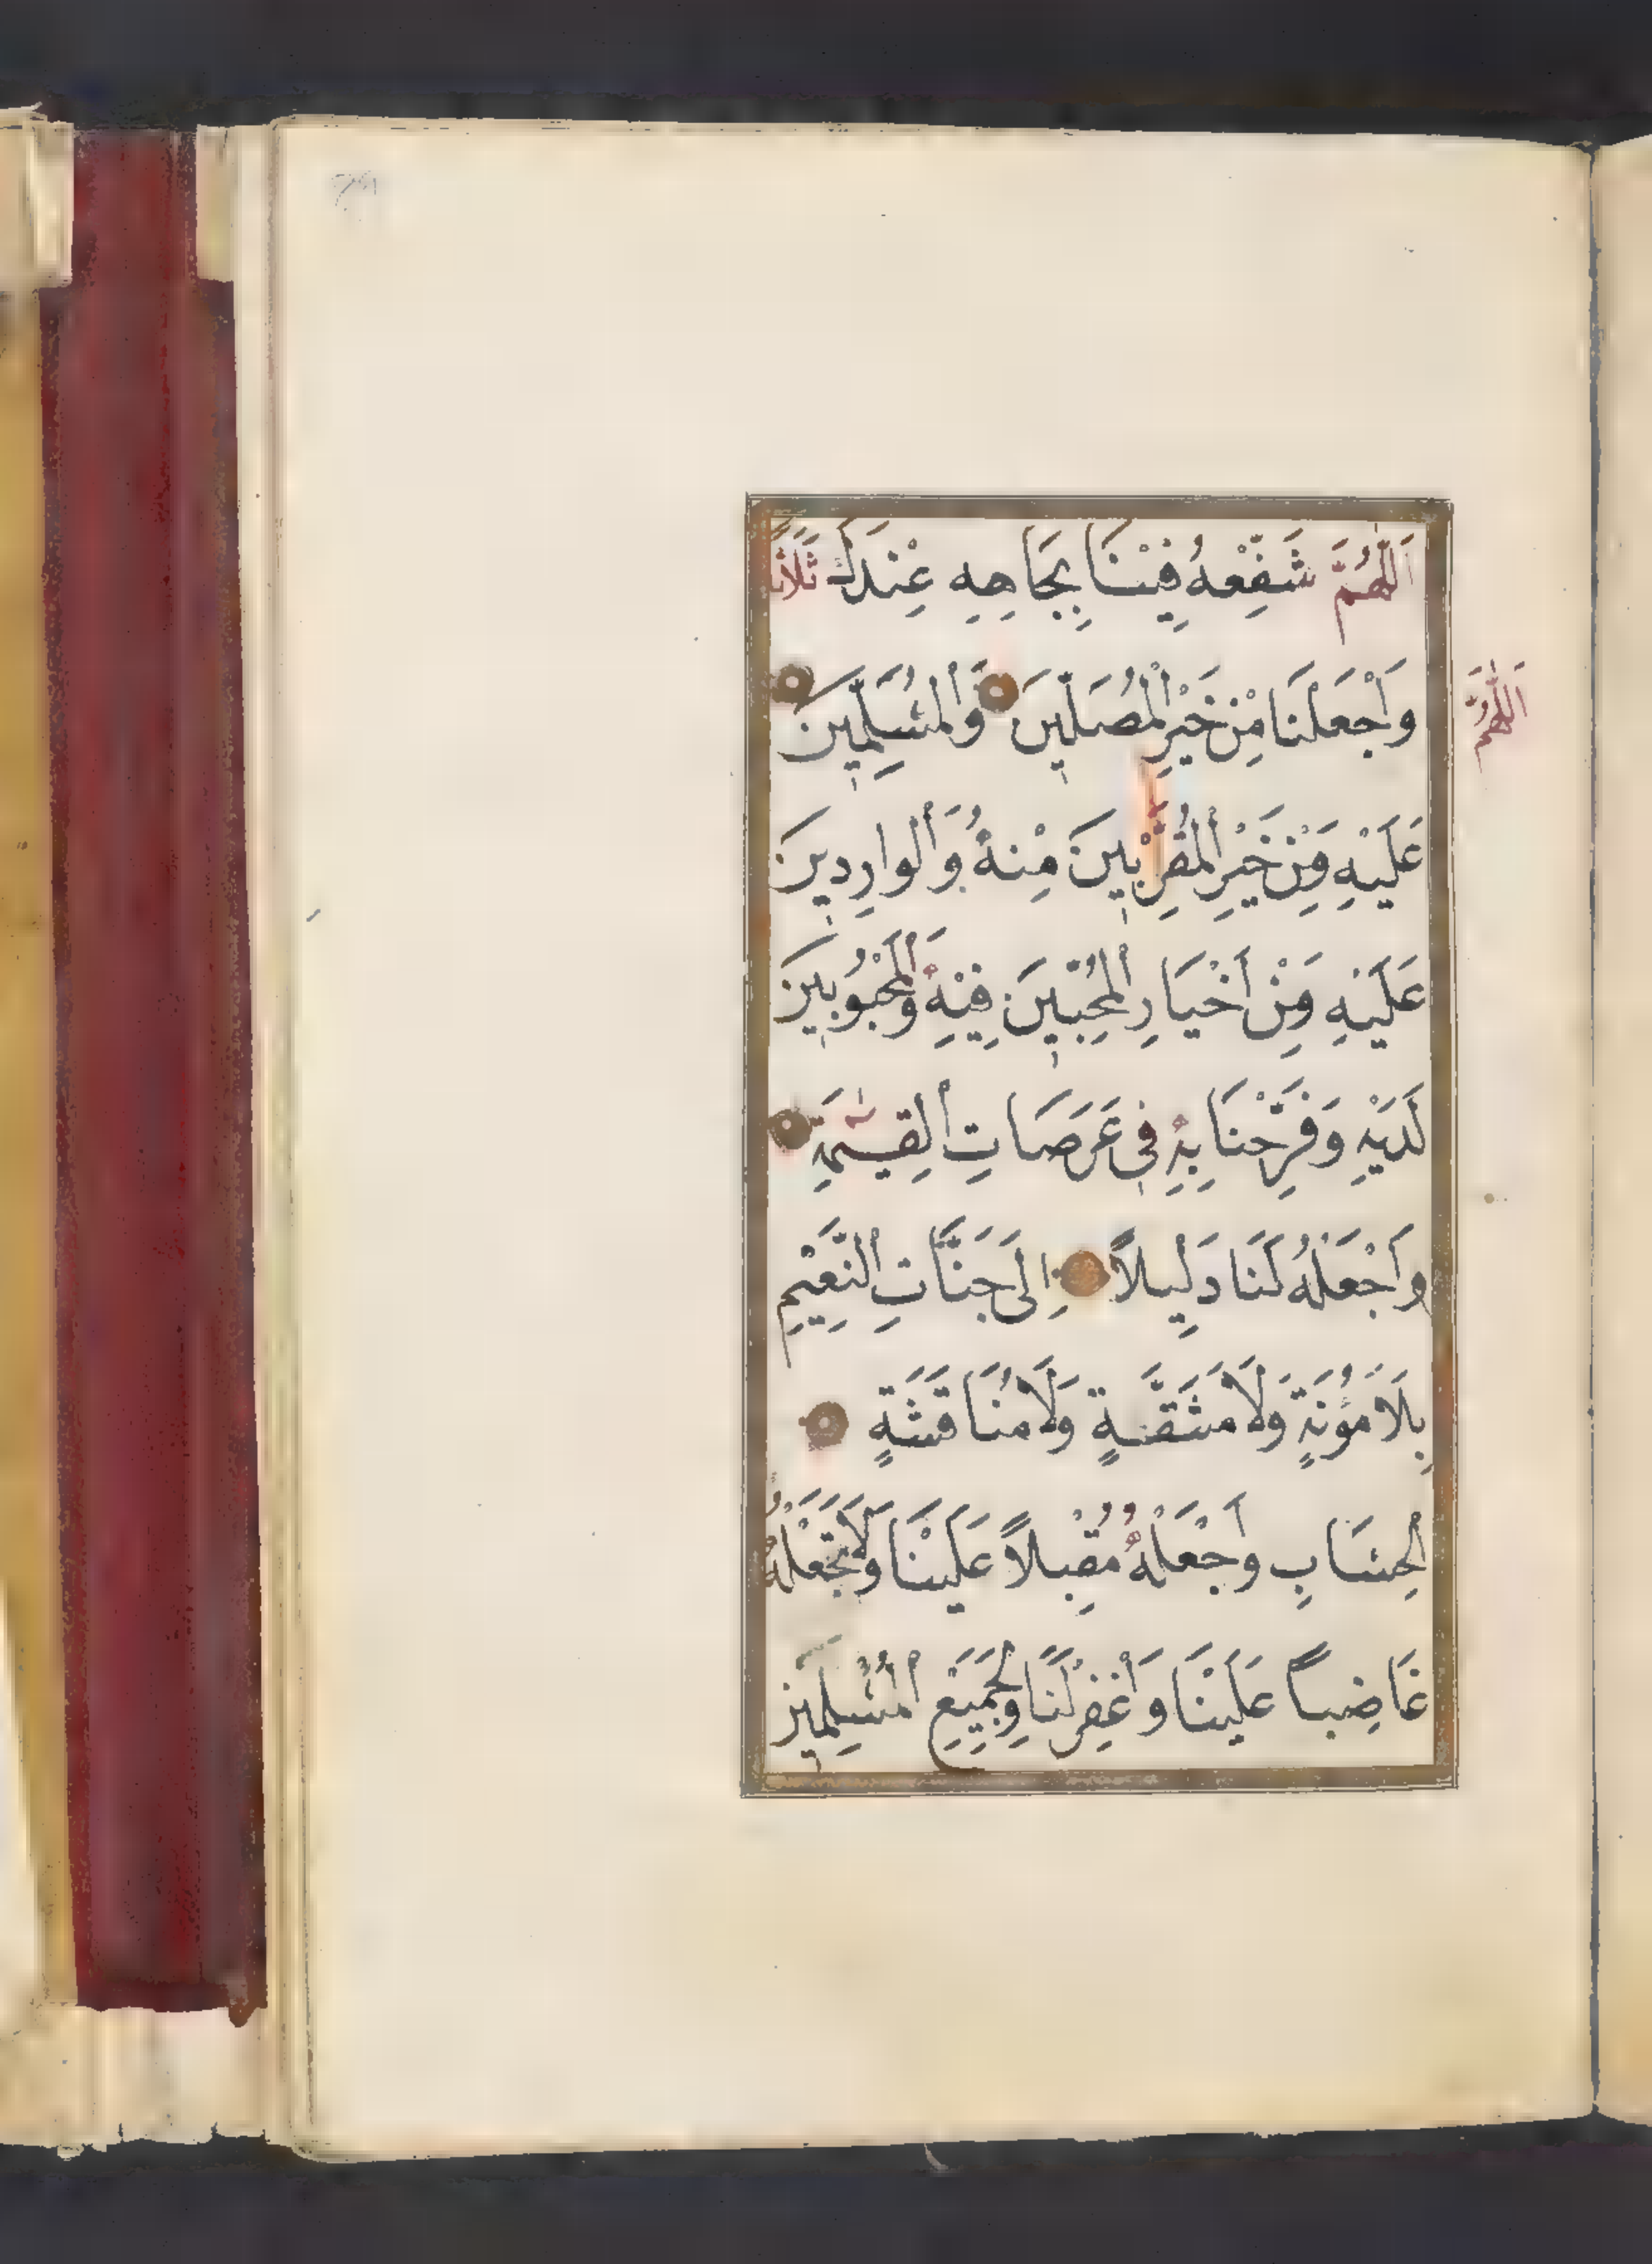 اَللّٰهُمَّ شَفِّعْهُ فِيْنَا بِجَاهِهِ عِنْدَكَ ثَلَاثًا
وَاَجْعَلْنَا مِنْ خَيْرِ اْلمُصَلِّينَ وَاْلمُسَلِّمِينَ
اَللّٰهُمَّ
عَلَيْهِ وَمِنْ خَيْرِ اْلمُقَرَّبِينَ مِنْهُ وَاْلوارِدِينَ
عَلَيْهِ وَمِنْ اَخْيَارِ اْلمُحِبِّينَ فِيْهِ وَاْلمَحْبُوبِينَ
لَدَيْهِ وَفَرِّحْنَا بِهِ فِى عَرَصَاتِ اْلقِيٰمَةِ
وَاَجْعَلْهُ لَنَا دَلِيلاً اِلَى جَنَّاتِ النَّعِيْمِ
بِلَا مَؤُنَةٍ وَلَا مَشَقَّةٍ وَلَا مُنَاقَشَةِ
اْلحِسَابِ وَاجْعَلْهُ مُقْبِلاً عَلَيْنَا وَلَا تَجْعَلْهُ
غَاضِباً عَلَيْنَا وَاْغْفِرْ لَنَا وَلِجَمِيْعِ اْلمُسْلِمِينَ